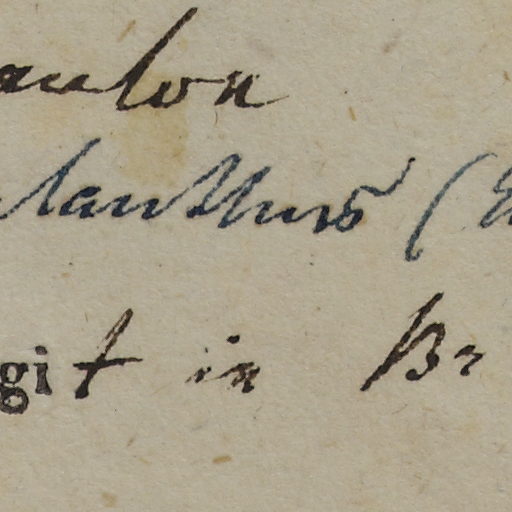 aulon
lanthus (E
git in Br